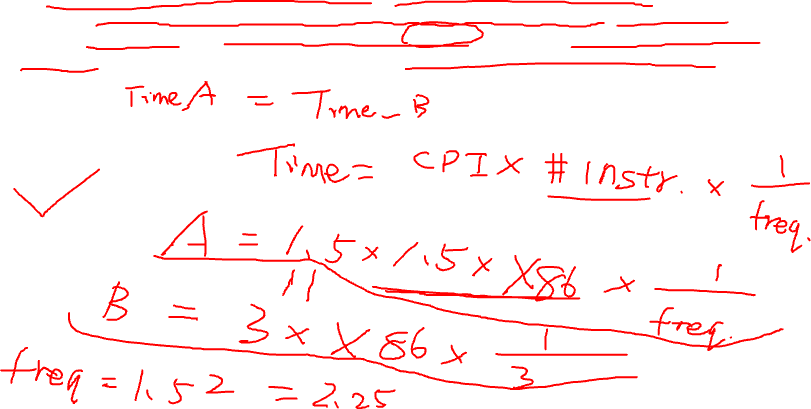 Time A = Time_B
Time = CPI × # instr. × 1/freq.
A = 1.5 × 1.5 × X86 × 1/freq.
11
B = 3 × X86 × 1/3
freq = 1.5² = 2.25